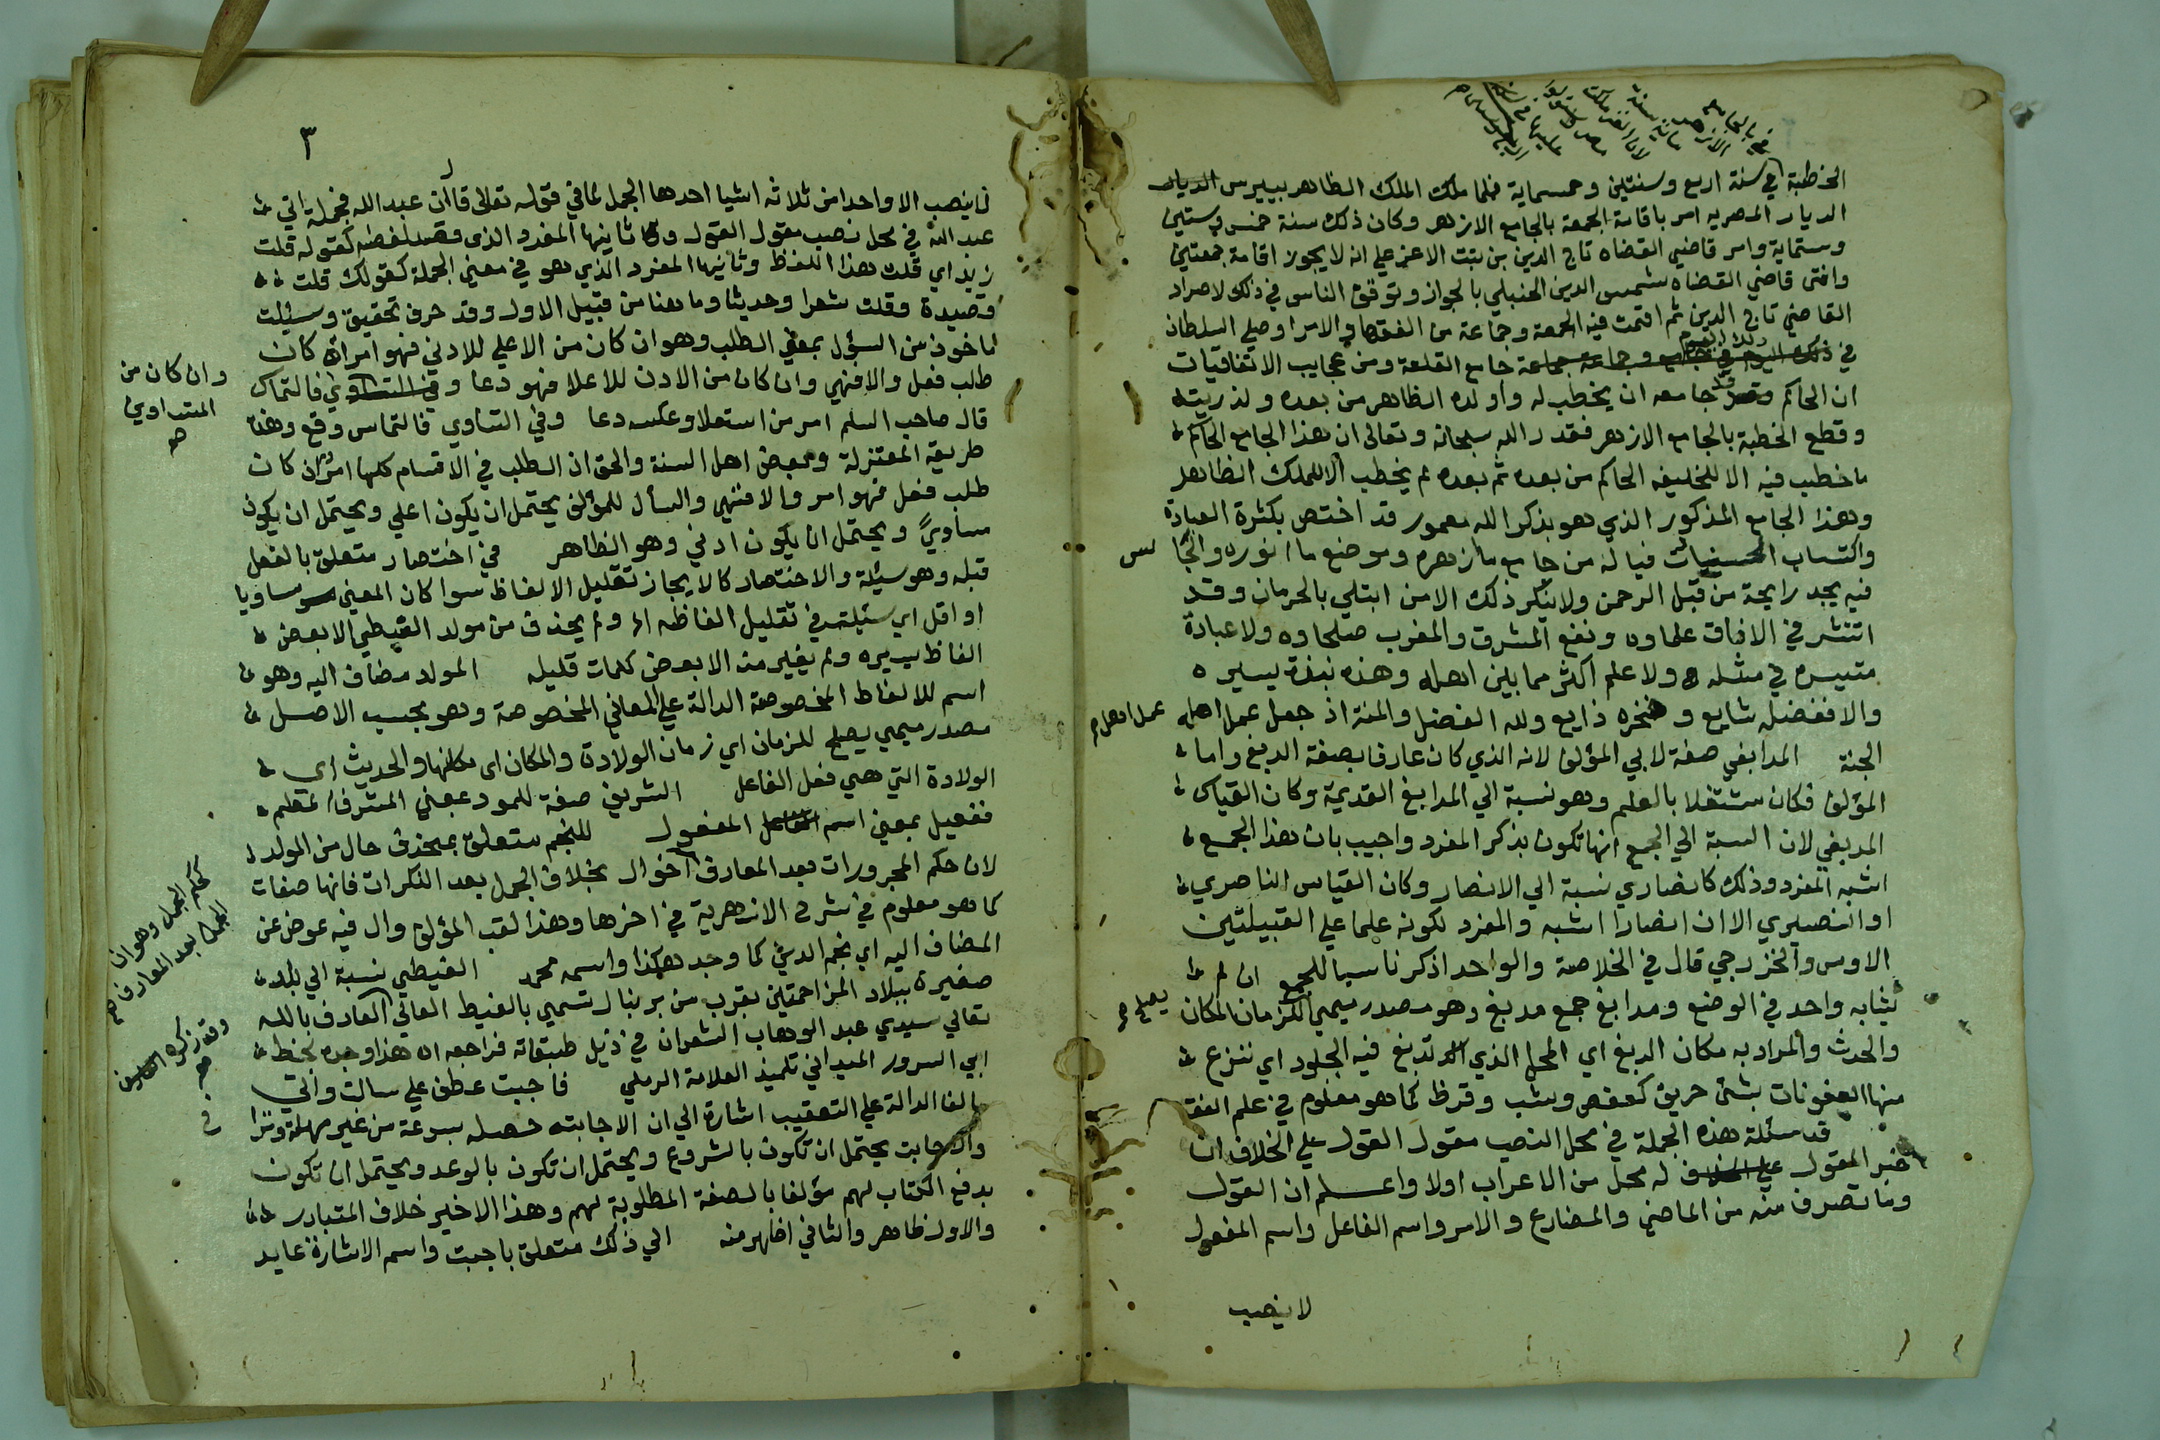 الخطبة في سنة اربع وستين وخمسماية فلما ملك الملك الظاهر بيبرس الديار
الديار المصريه امر باقامة الجمعة بالجامع الازهر وكان ذلك سنة خمس وستين
وستماية وامر قاضي القضاه تاج الدين بن بنت الاعز علي انه لا يجوز اقامة جمعتين
وافتى قاضي القضاه شمس الدين الحنبلي بالجواز وتوقف الناس في ذلك لاصرار
القاضي تاج الدين ثم اقمت فيه الجمعة وجماعة من الفقها والامرا وصلي السلطان
في ذلك اليوم جامع القلعة ومن عجايب الاتفاقيات
ان الحاكم وقد جامعه ان يخطب له واولده الظاهر من بعده ولذريته
وقطع الخطبة بالجامع الازهر فقدر الله سبحانه وتعالى ان هذا الجامع الحاكم
ما خطب فيه الا للخليفه الحاكم من بعده ثم بعده لم يخطب الا للملك الظاهر
وهذا الجامع المذكور الذي هو بذكر الله معمور قد اختص بكثرة العبادة
واكتساب الحسنيات فيا له من جامع ما ازهره وموضع ما انوره والجا لس
فيه يجد رايحة من قبل الرحمن ولا ينكر ذلك الا من ابتلي بالحرمان وقد
انتشر في الافاق علماوه ونفع المشرق والمغرب صلحاوه ولا عبادة
متيسره في مثله ولا علم اكثر مما بين اهله وهذه نبذة يسيره
والا ففضله شايع وفخره ذايع ولله الفضل والمنة اذ جعل عمل اهله
عمل اهل
الجنة المدابغي صفة لابي المؤلف لانه الذي كان عارفا بصفة الدبغ واما
المؤلف فكان مشتغلا بالعلم وهو نسبة الي المدابغ القديمة وكان القياس
المدبغي لان النسبة الي الجمع انها تكون بذكر المفرد واجيب بان هذا الجمع
اشبه المفرد وذلك كانصاري نسبة الي الانصار وكان القياس الناصري
او النصيري الا ان انصارا اشبه والمفرد لكونه علما علي القبيلتين
الاوس والخزرجي قال في الخلاصة والواحد اذكر ناسبا للجمع ان لم
يشابه واحد في الوضع ومدابغ جمع مدبغ وهو مصدر ميمي للزمان المكان
يصلح
والحدث والمراد به مكان الدبغ اي المحل الذي تدبغ فيه الجلود اي تنزع
منها العفونات بشئ حريف كعفص وشب وقرظ كما هو معلوم في علم الفقه
قد سئلة هذه الجملة في محل النصب مقول القول علي الخلاف ان
خبر المقول له محل من الاعراب اولا واعلم ان القول
وما تصرف منه من الماضي والمضارع والامر واسم الفاعل واسم المفعول
لا ينصب
٣
لا ينصب الا واحدا من ثلاثه اشيا احدها الجمل كما في قوله تعالى قال ان عبد الله فجملة اني
عبد الله في محل نصب مقول القول وثانيها المفرد الذي قصد لفظه كقوله قلت
زيد اي قلت هذا اللفظ وثانيها المفرد الذي هو في معني الجملة كقولك قلت
قصيدة وقلت شعرا وحديثا وما هنا من قبيل الاول وقد حرف تحقيق وسئلت
ماخوذ من السؤل بمعني الطلب وهو ان كان من الاعلي للادني فهو امر ان كان
طلب فعل والا فنهي وان كان من الادن للاعلا فهو دعا وفي التساوي فالتماس
وان كان من
المتساوي
قال صاحب السلم امر من استعلا وعكسه دعا وفي التساوي فالتماس وقع وهذه
طريقة المعتزلة وبعض اهل السنة والحق ان الطلب في الاقسام كلها امر ان كان
طلب فعل فهو امر والا فنهي والسأل للمؤلف يحتمل ان يكون اعلي ويحتمل ان يكون
مساويً ويحتمل ان يكون ادني وهو الظاهر في اختصار متعلق بالفعل
قبله وهو سئلة والاختصار كالايجاز تقليل الالفاظ سوا كان المعني مساويا
او اقل اي سئلت في تقليل الفاظه اه ولم يحذف من مولد الغيطي الا بعض
الفاظ يسيره ولم يغير منه الا بعض كلمات قليله المولد مضاف اليه وهو
اسم للالفاظ المخصوصة الدالة علي المعاني المخصوصة وهو بحسب الاصل
مصدر ميمي يصلح للزمان اي زمان الولادة والمكان اى مكانها والحديث اي
الولادة التي هي فعل الفاعل الشريف صفة للمولد بمعني المشرف المعلم
ففعيل بمعني اسم المفعول للنجم متعلق بمحذف حال من المولد
لان حكم المجرورات بعد المعارف احوال بخلاف الجمل بعد النكرات فانها صفات
كحكم الجمل وهو ان
الجمل بعد المعارف
كما هو معلوم في شرح الازهرية في اخرها وهذا لقب المؤلف وال فيه عوض عن
المضاف اليه اي نجم الدين كما وجد هكذا واسمه محمد الغيطي نسبة الي بلده
صغيرة ببلاد المزاحمتين بقرب من برنبال تسمي بالغيط العاني العارف بالله
تعالي سيدي عبد الوهاب الشعران في ذيل طبقاته فراجعه اه هذا وجده بخط
وقد ذكره
ابي السرور الميداني تلميذ العلامة الرملي فاجبت عطف علي سالت واتي
بالفا الدالة علي التعقيب اشارة الي ان الاجابته حصله بسرعة من غير مهلة وترا
والاجابت يحتمل ان تكون بالشروع ويحتمل ان تكون بالوعد ويحتمل ان تكون
بدفع الكتاب لهم مؤلفا بالصفة المطلوبة لهم وهذا الاخير خلاف المتبادر
والاول ظاهر والثاني اظهر منه الي ذلك متعلق باجبت واسم الاشارة عايد